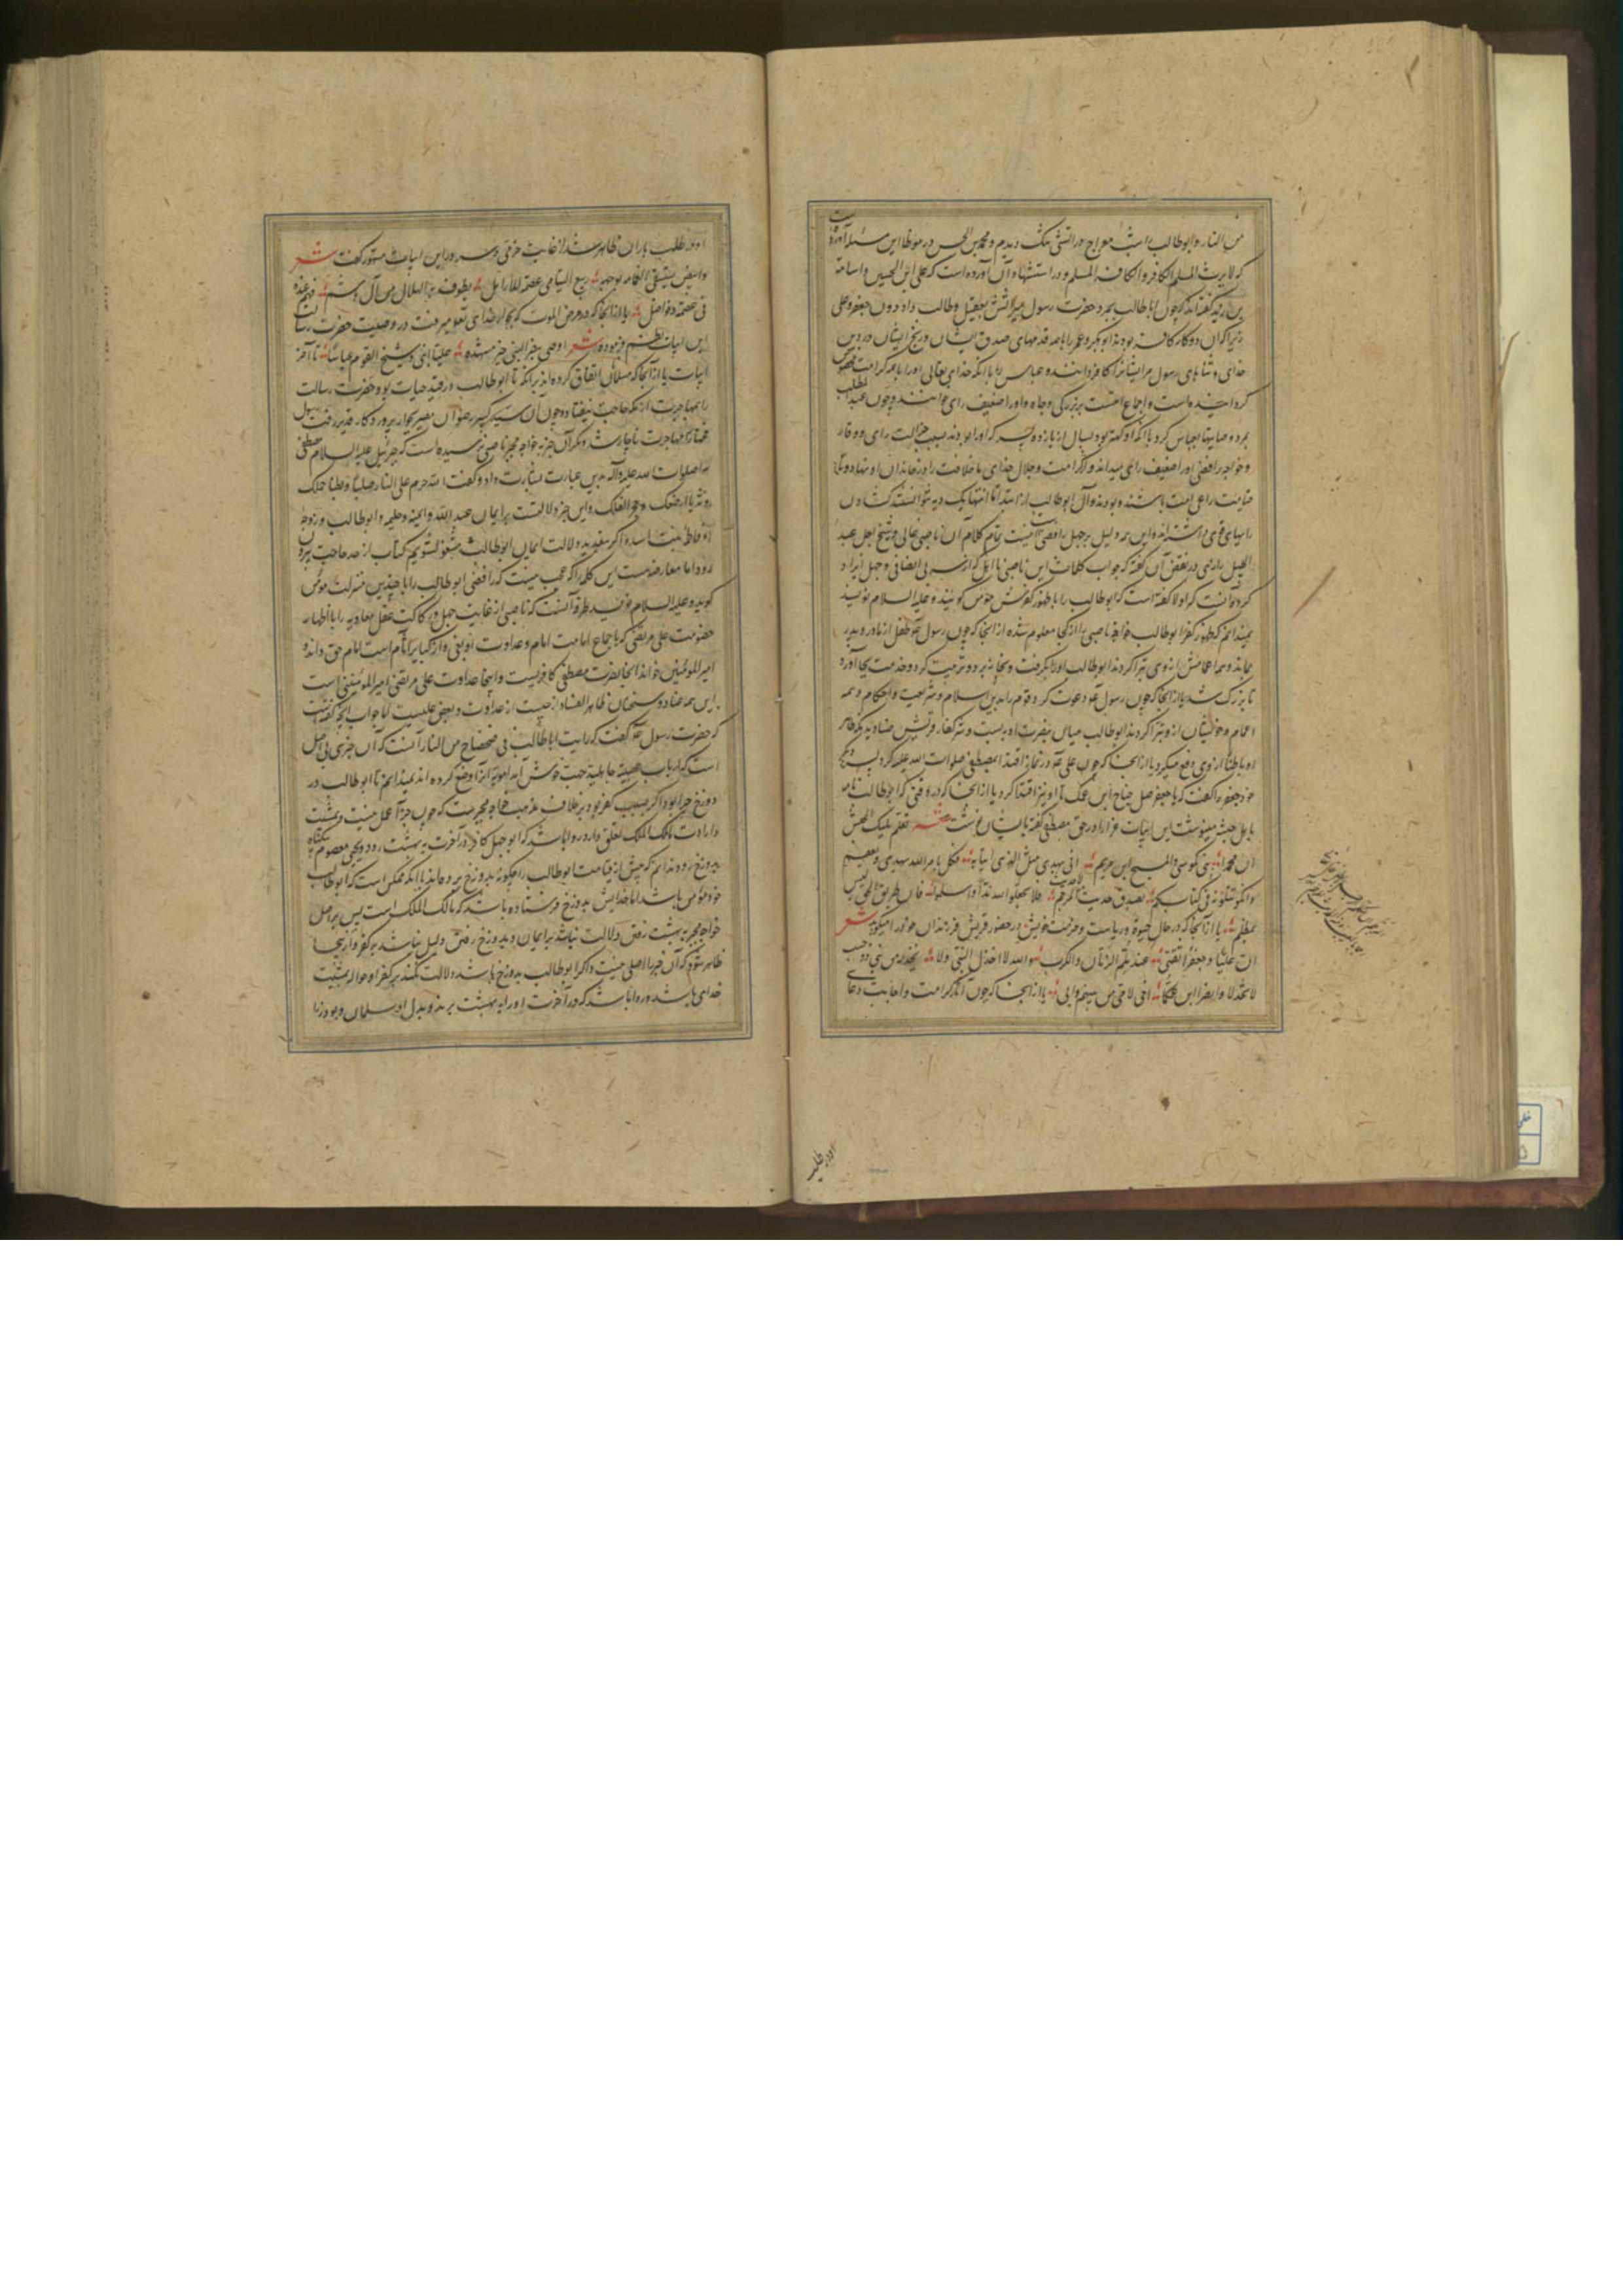 من النار و ابوطالب را شب معراج در آتش تنک دیدم و محمد بن الحسن در موطا این مسئله آورده است
که لا یرث المسلم الکافر و لا الکافر المسلم و در استشهاد آن آورده است که علی ابن الحسین و اسامة
بن زید گفته‌اند که چون اباطالب بمرد حضرت رسول میراثش بعقیل و طالب داد دون جعفر و علی
زیرا که آن دو کافر بودند ابوبکر و عمر را با همه قدمهای صدق ایشان و رنج ایشان در دین
خدای و ثناهای رسول مر ایشانرا کافر دانند و عباس را با آنکه خدای تعالی او را با همه کرامت مخصوص
کردانیده است و اجماع امتست بر بزرکی و جاه او را ضعیف رای خوانند و چون عبدالمطلب
بمرد وصایتها بعباس کرد با آنکه او کهتر بود بسال از یازده پسر که او را بودند بسبب جزالت رای و وقار
و خواجه رافضی او را ضعیف رای میداند و کرامت و جلال خدای تا خلافت را در خاندان او نهاد و تا
قیامت راعی امت باشند و بودند و آل ابوطالب از ابتدا تا انتها یک دیه نتوانستند کشادن
رایهای قوی داشته‌اند و این همه دلیل بر جهل رافضی است اینست تمام کلام آن ناصبی غالی و شیخ اجل عبد
الجلیل رازی در نقض آن گفته که جواب کلمات این ناصبی نااهل که از سر بی انصافی و جهل ایراد
کرده آنست که اولا گفته است که ابوطالب را با ظهور کفرش مؤمن گویند و علیه السلام نویسند
نمیدانم که ظهور کفر ابوطالب خواجه ناصبی را از کجا معلوم شده از آنجا که چون رسول طفل از مادر و پدر
بماند و همه اعمامش از وی تبرا کردند ابوطالب او را برگرفت و بخانه برد و تربیت کرد و خدمت بجا آورد
تا بزرک شد یا از آنجا که چون رسول دعوت کرد و قوم را بدین اسلام و شریعت و احکام و همه
اعمام و خویشان از و تبرا کردند ابوطالب میان بنصرت او به بست و شر کفار قریش
او باطنا از وی دفع میکرد یا از آنجا که چون علی در نماز اقتدا بمصطفی صلوات الله علیه کرد پسر دیگر
خود جعفر را گفت که یا جعفر صل جناح ابن عمک تا او نیز اقتدا کرد یا از آنجا که در وقتی که ابوطالب نامه
باهل حبشه مینوشت این ابیات غرا را در حق مصطفی گفته بایشان نوشت شعر تعلم ملیک الحبش
ان محمدا نبی کموسی و المسیح ابن مریم اتی بهدی مثل الذی اتیا به فکل بامر الله یهدی و یعصم
و انکم تتلونه فی کتابکم بصدق حدیث لا حدیث المرجم فلا تجعلوا لله ندا و اسلموا فان طریق الحق لیس
بمظلم یا از آنجا که در حال حیوة و ریاست و حرمت خویش در حضور قریش فرزندان خود را میکوید شعر
ان علیا و جعفرا ثقتی عند ملم الزمان و الکرب و الله لا اخذل النبی و لا یخذله من بنی ذو حسب
لا تخذلا و انصرا ابن عمکما اخی لامی من بینهم و ابی یا از آنجا که چون آثار کرامت و اجابت دعای
او در طلب
او در طلب باران ظاهر شد از غایت خرمی و سرور این ابیات مشهور گفت شعر
و ابیض یستسقی الغمام بوجهه ربیع الیتامی عصمة للارامل یطوف به الهلال من آل هاشم فهم عنده
فی عصمة و فواضل یا از آنجا که در مرض الموت که بجوار خدای تعالی میرفت در وصیت حضرت رسالت
این ابیات نظم فرموده شعر اوصی بنصر النبی خیر مشهده علیا ابنی و شیخ القوم عباسا تا آخر
ابیات یا از آنجا که مسلمانان اتفاق کرده‌اند بر آنکه تا ابوطالب در قید حیات بود حضرت رسالت
را بمهاجرت از مکه حاجت نیفتاد و چون آن سید کبیر رضوان مصیر بجوار پروردکار قدیر رفت رسول
مختار را مهاجرت ناچار شد و مکر آن خبر به خواجه مجبر ناصبی نرسیده است که جبرئیل علیه السلام مصطفی
را صلوات الله علیه و آله بدین عبارت بشارت داد و گفت ان الله حرم علی النار صلبا و بطنا حملک
و ثدیا ارضعک و حجرا کفلک و این خبر دلالتست بر ایمان عبدالله و آمنه و حلیمه و ابوطالب و زوجه
او فاطمه بنت اسد و اکر بتفصیل دلالت ایمان ابوطالب مشغول شویم کتاب از حد حاجت بیرون
رود اما معارضه است این کلمه را که عجب نیست که رافضی ابوطالب را با چندین منزلت مؤمن
کوید و علیه السلام نویسد طرفه آنست که ناصبی از غایت جهل و رکاکت عقل معاویه را با اظهار
خصومت علی مرتضی که باجماع امامت امام و عداوت او بغی و از کبایر آثام است امام حق داند و
امیرالمومنین خواند آنجا نصرت مصطفی کافریست و اینجا عداوت علی مرتضی امیرالمومنینی است
این همه عناد و سخنان ظاهر الفساد از چیست از عداوت و بغض علیست اما جواب آنچه گفته است
که حضرت رسول گفت که رایت اباطالب فی ضحضاح من النار آنست که آن خبری بی اصل
است که ارباب عصبیة جاهلیة جهت خوش آمد امویه آنرا وضع کرده‌اند نمیدانم تا ابوطالب در
دوزخ چرا بود اکر بسبب کفر بود بر خلاف مذهب خواجه مجبر است که چون جزا عمل نیست و بمشیت
و ارادت مالک الملک تعلق دارد روا باشد که ابوجهل کافر در آخرت به بهشت رود و یحیی معصوم بیگناه
بدوزخ رود ندانم که پیش از قیامت ابوطالب را چگونه بدوزخ بردهاند با آنکه ممکن است که ابوطالب
خود مؤمن باشد اما خدایش بدوزخ فرستاده باشد که مالک الملک است پس بر اصل
خواجه مجبر به بهشت رفتن دلالت نباشد بر ایمان و بدوزخ رفتن دلیل نباشد بر کفر و از اینجا
ظاهر شود که آن خبر را اصلی نیست و اکر ابوطالب بدوزخ باشد دلالت نکند بر کفر او حواله بمشیت
خدای باشد و روا باشد که در آخرت او را به بهشت برند و بدل او سلمان و بوذر را